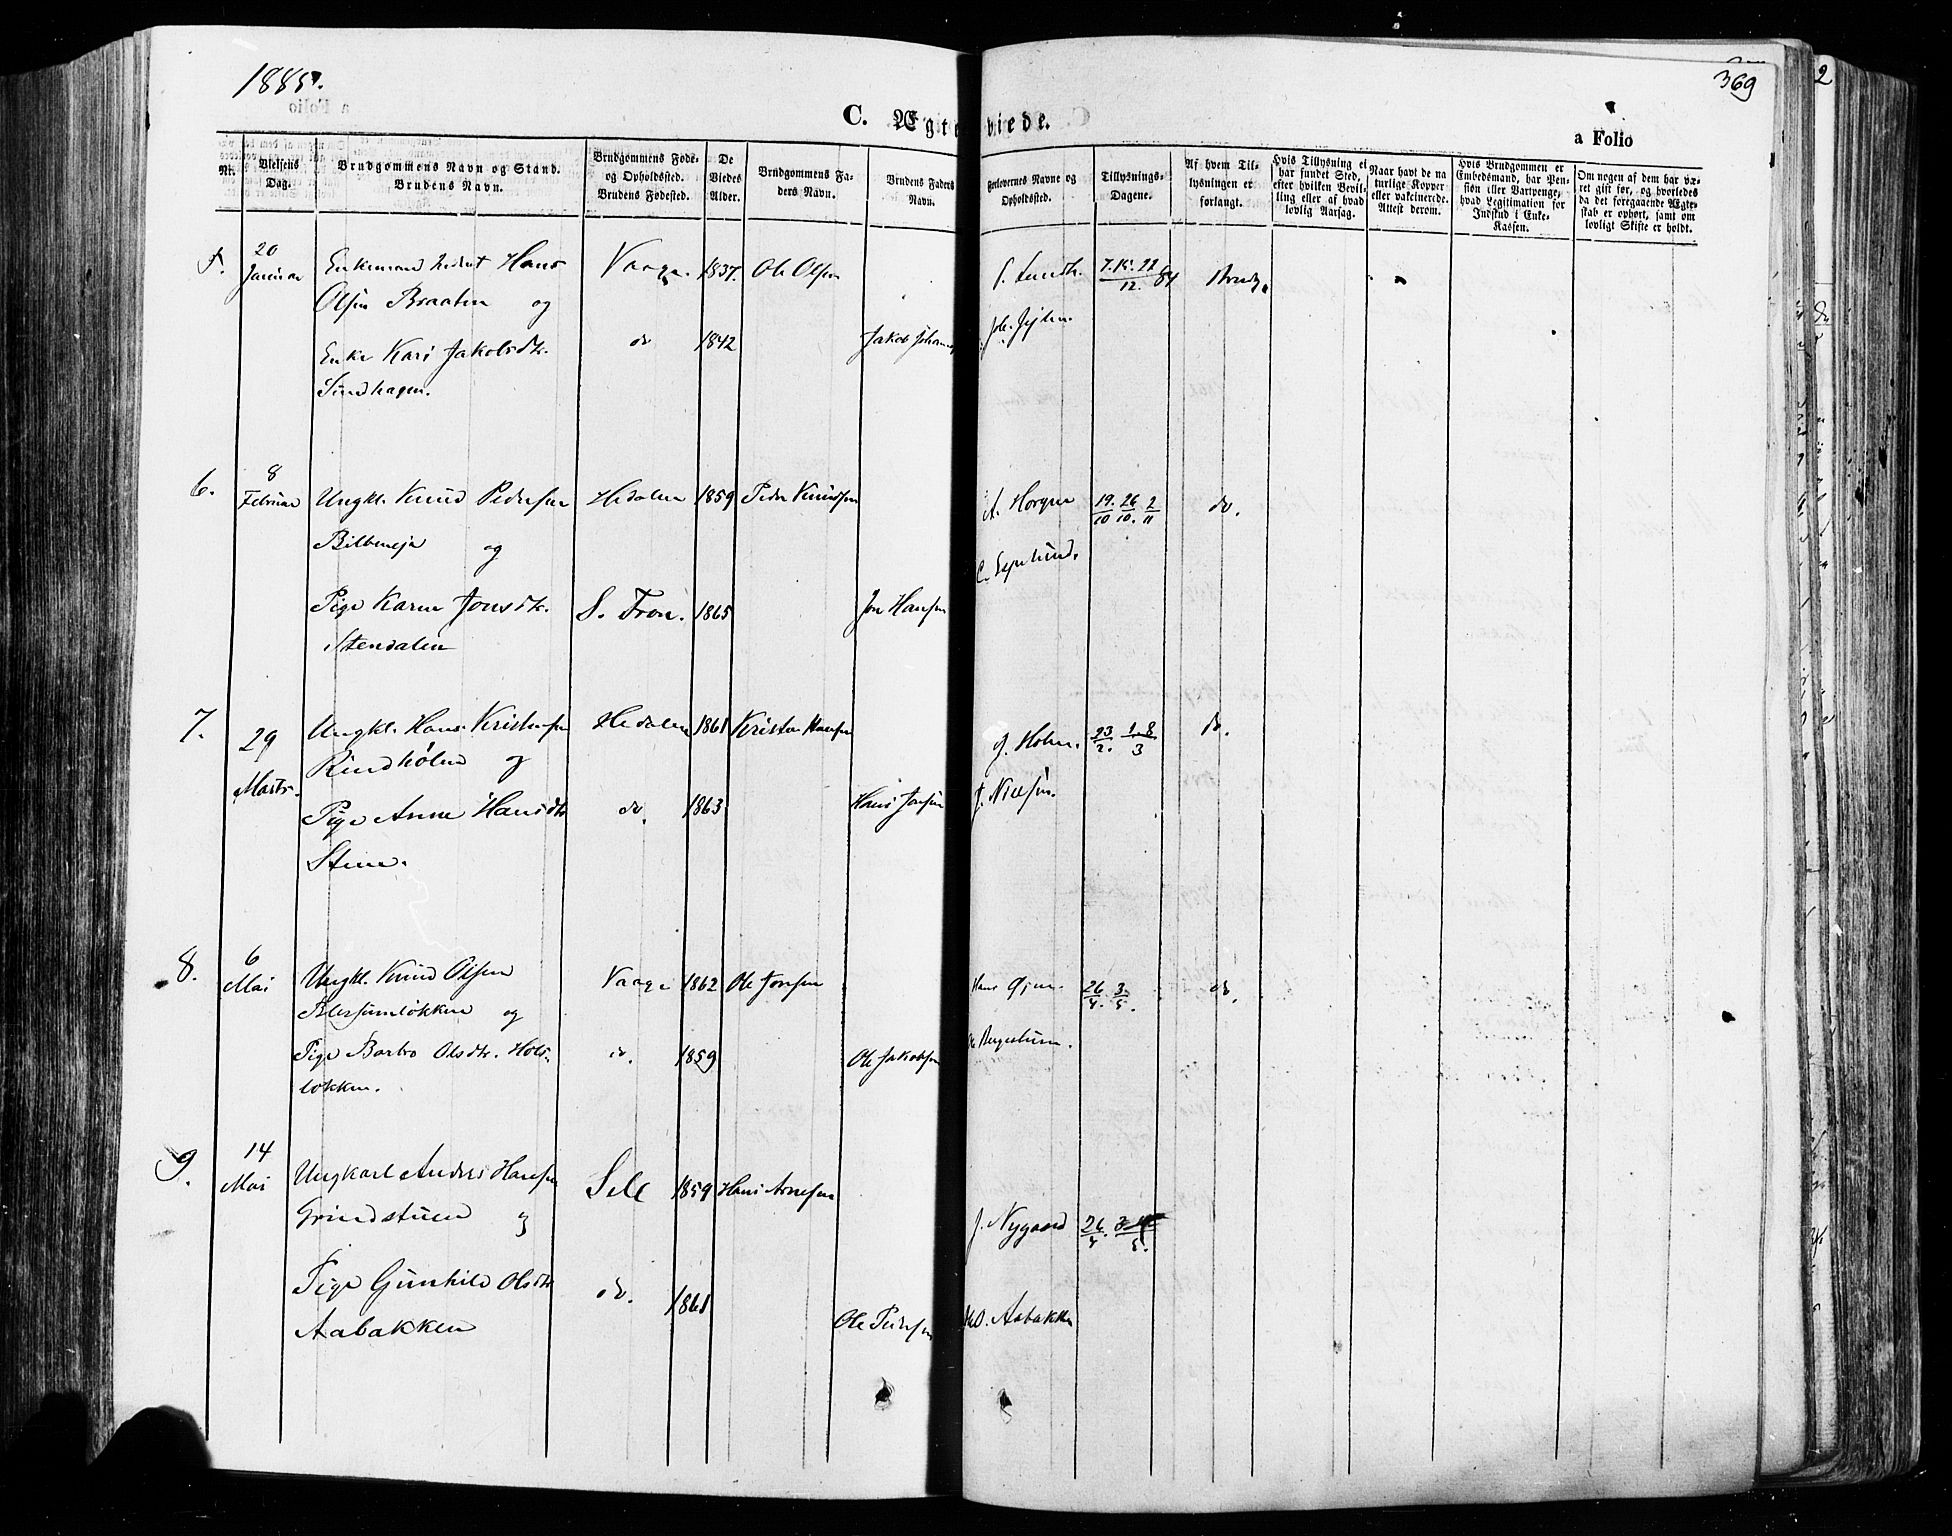 1885.
369
2
C. Ægteviede.
a Folio
Nr.
Vielsens Dag.
Brudgommens Navn og Stand. Brudens Navn.
Brudgommens Føde- og Opholdssted. Brudens Fødested.
De Viedes Alder.
Brudgommens Faders Navn.
Brudens Faders Navn.
Forlovernes Navne og Opholdssted.
Tillysnings-Dagene.
Af hvem Tillysningen er forlangt.
Hvis Tillysning ei har fundet Sted, efter hvilken Bevilling eller af hvad lovlig Aarsag.
Naar havt de naturlige Kopper eller vakcinerede. Attest derom.
Hvis Brudgommen er Embedsmand, har Pension eller Vartpenge, hvad Legitimation for Indskud i Enke-Kassen.
Om nogen af dem har været gift før, og hvorledes da det foregaaende Ægteskab er ophørt, samt om lovligt Skifte er holdt.
5. 20 Januar Enkemand Hans Vaage. 1837. Ole Olsen
Olsen Braaten og
Enke Kari Jakobsdtr. do 1842 Jakob
6. 8 Februar Ungkl. Knud Pedersen Hedalen 1859 Peder Knudsen A. Horgen 19/10 26/10. 2/11 do.
og
Pige Karen Jonsdtr. S. Fron. 1865 Jon Hansen
Stendalen
7. 29 Marts. Ungkl. Hans Kristensen Hedalen 1861 Kristen Hansen J. Holen. 23/2. 1. 8/3 do.
Rindhølen og
Pige Anne Hansdtr do. 1863 Hans J. Nielsen.
Steen.
8. 6 Mai Ungkl. Knud Olsen Vaage 1862 Ole Hans 26/4. 3/5. do.
Blessumløkken og
Pige Barbro Olsdtr. Hols- do. 1859 Ole Jakobsen
løkken.
9. 14 Mai Ungkarl Anders Hansen Sell 1859 Hans Arnesen
Grindstuen og J. Nygaard 26/4.
Pige Gunhild Olsdtr do. 1861
Aabakken Ole Pedersen Aabakken